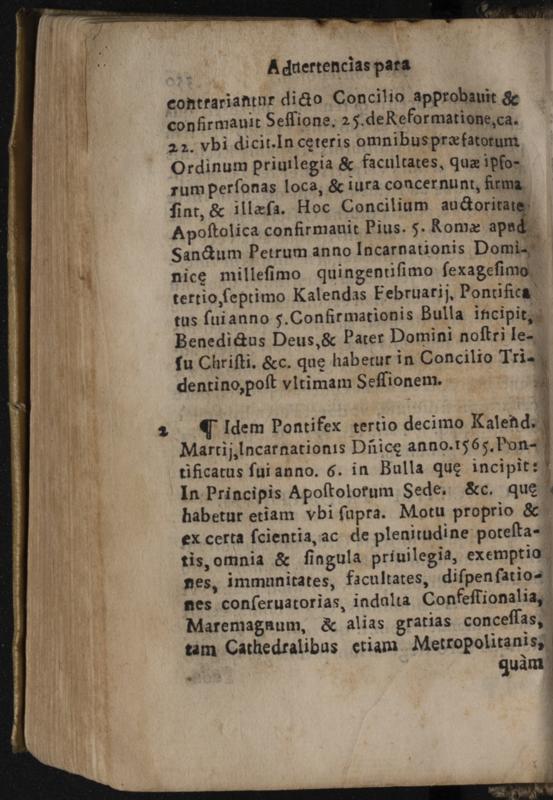 Aduertencias para
contrariantur dicto Concilio approbauit &
confirmauit Sessione. 25. de Reformatione, ca.
22. vbi dicit. In cęteris omnibus præfatorum
Ordinum priuilegia & facultates, quæ ipso-
rum personas loca, & iura concernunt, firma
sint, & illæsa. Hoc Concilium auctoritate
Apostolica confirmauit Pius. 5. Romæ apud
Sanctum Petrum anno Incarnationis Domi-
nicę millesimo quingentisimo sexagesimo
tertio, septimo Kalendas Februarij, Pontifica
tus sui anno 5. Confirmationis Bulla incipit,
Benedictus Deus, & Pater Domini nostri Ie-
su Christi. &c. quę habetur in Concilio Tri-
dentino, post vltimam Sessionem.
2 ¶ Idem Pontifex tertio decimo Kalend.
Martij, Incarnationis Dñicę anno. 1565. Pon-
tificatus sui anno. 6. in Bulla quę incipit:
In Principis Apostolorum Sede. &c. quę
habetur etiam vbi supra. Motu proprio &
ex certa scientia, ac de plenitudine potesta-
tis, omnia & singula priuilegia, exemptio
nes, immunitates, facultates, dispensatio-
nes conseruatorias, indulta Confessionalia,
Maremagnum, & alias gratias concessas,
tam Cathedralibus etiam Metropolitanis,
quàm